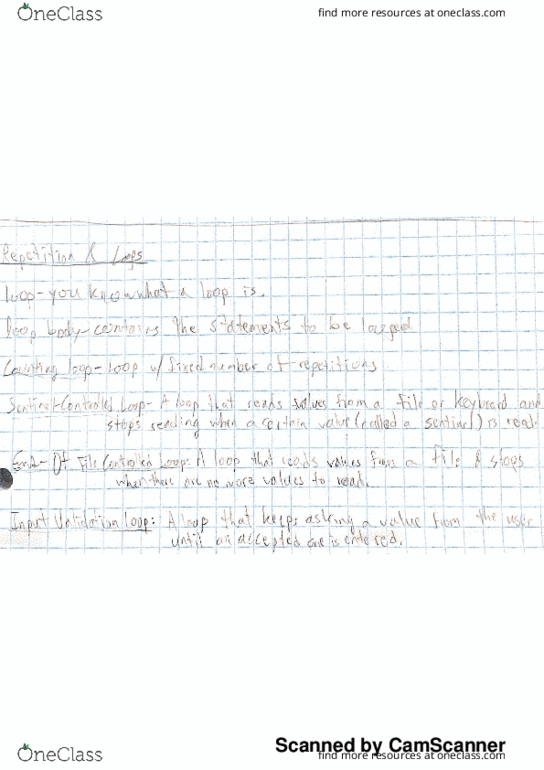 OneClass
find more resources at oneclass.com
Repetition & Loops
loop-you know what a loop is.
loop body-contains the statements to be looped
Counting loop-loop w/ fixed number of repetitions
Sentinel-Controlled Loop- A loop that reads values from a file or keyboard and
stops reading when a certain value (called a sentinel) is read.
End-Of File Controlled Loop: A loop that reads values from a file & stops
when there are no more values to read.
Input Validation loop: A loop that keeps asking a value from the user
until an accepted one is entered.
Scanned by CamScanner
OneClass
find more resources at oneclass.com